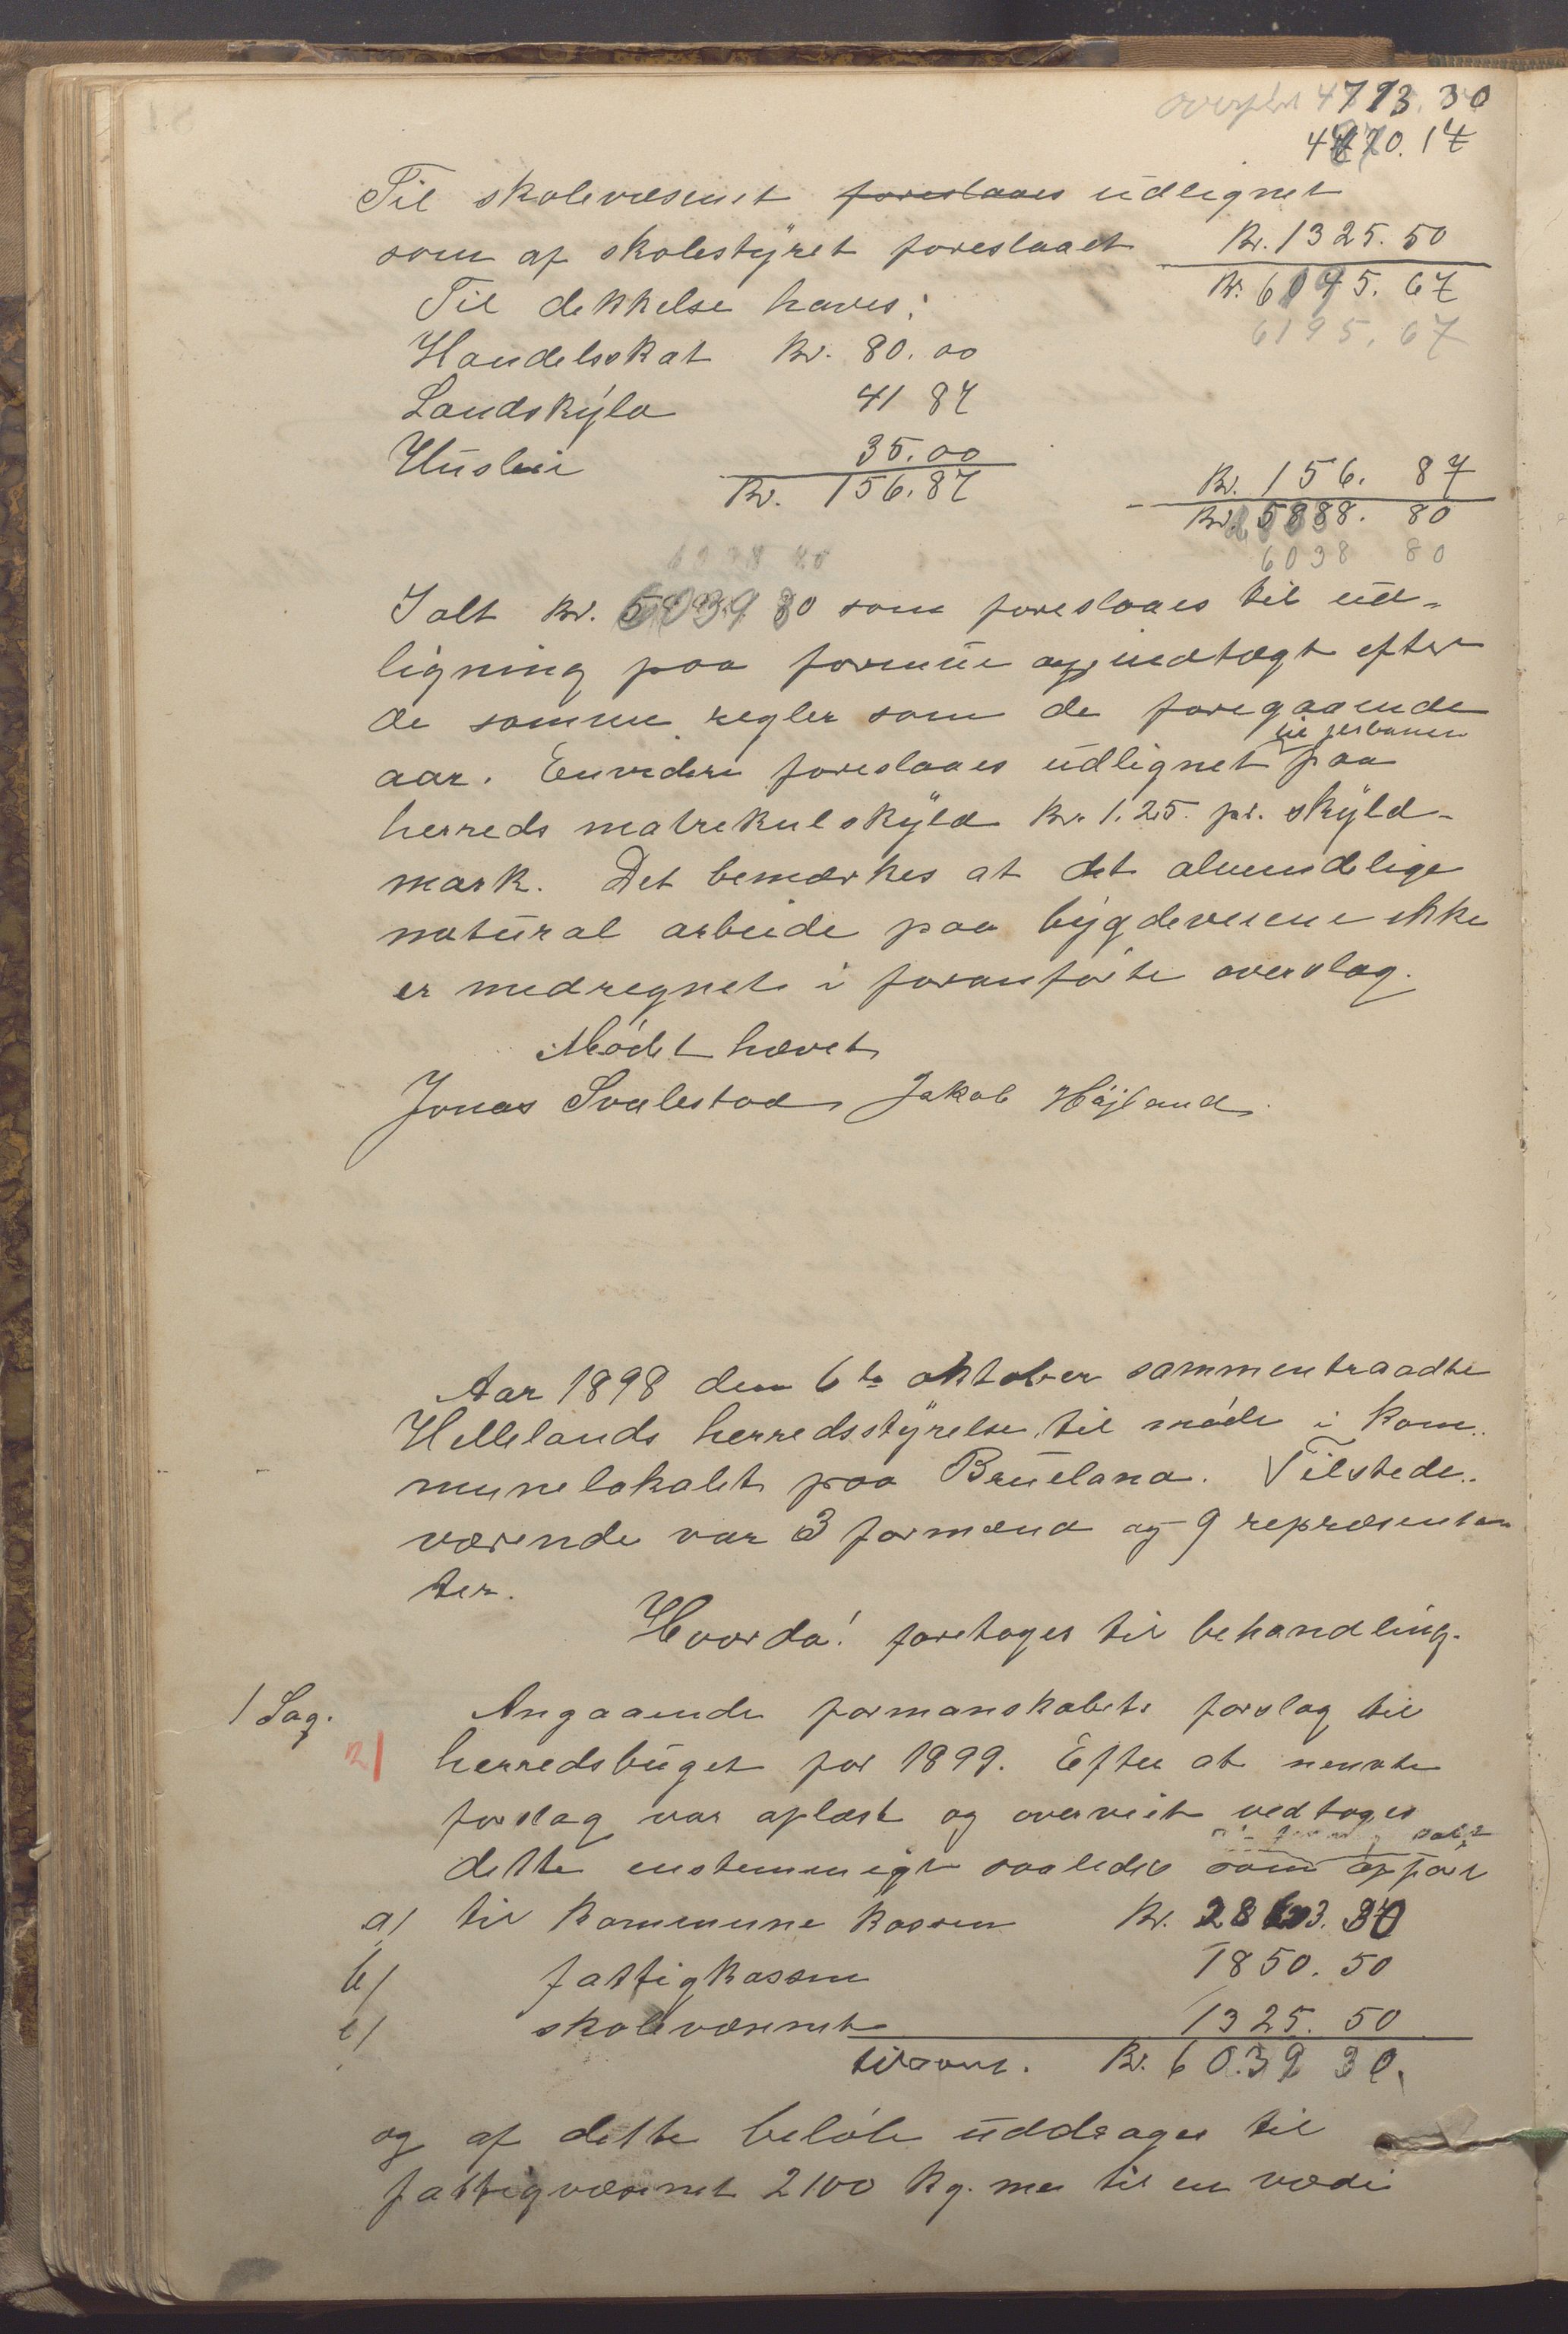 4713.30
4870.17
Til skolevæsenet foreslaaes udlignet
som af skolestyret foreslaaet Kr. 1325.50
Kr. 6045.67
Til dekkelse haves:
6195.67
Handelsskat Kr. 80.00
Landskyld 41 87
Husleie 35.00
Kr. 156.87 Kr. 156. 87
Kr. 5888. 80
6038 80
Ialt Kr. som foreslaaes til ud-
ligning paa formue og indtægt efter
de samme regler som de foregaaende
aar. Envidere foreslaaes udlignet paa
herreds matrikulskyld Kr. 1.25. pr. skyld-
mark. Det bemærkes at det almindelige
natural arbeide paa bygdeveiene ikke
er medregnet i foranførte overslag.
Mødet hævet
Jonas Svalestad Jakob Højland
Aar 1898 den 6te oktober sammentraadte
Hellelands herredsstyrelse til møde i kom-
munelokalet paa Brueland. Tilstede-
værende var 3 formænd og 9 repræsentan
ter.
Hvorda! foretoges til behandling.
1 Sag. Angaaende formanskabets forslag til
herredsbuget for 1899. Efter at nevnte
forslag var oplæst og overveiet vedtoges
dette enstemmigt saaledes som opført
a/ til kommune kassen Kr.
b/ fattigkassen 1850.50
c/ skolevæsenet 1325.50
tilsam. Kr. 6039 30.
og af dette beløb uddrages til
fattigvæsenet 2100 kg. mel til en værdi